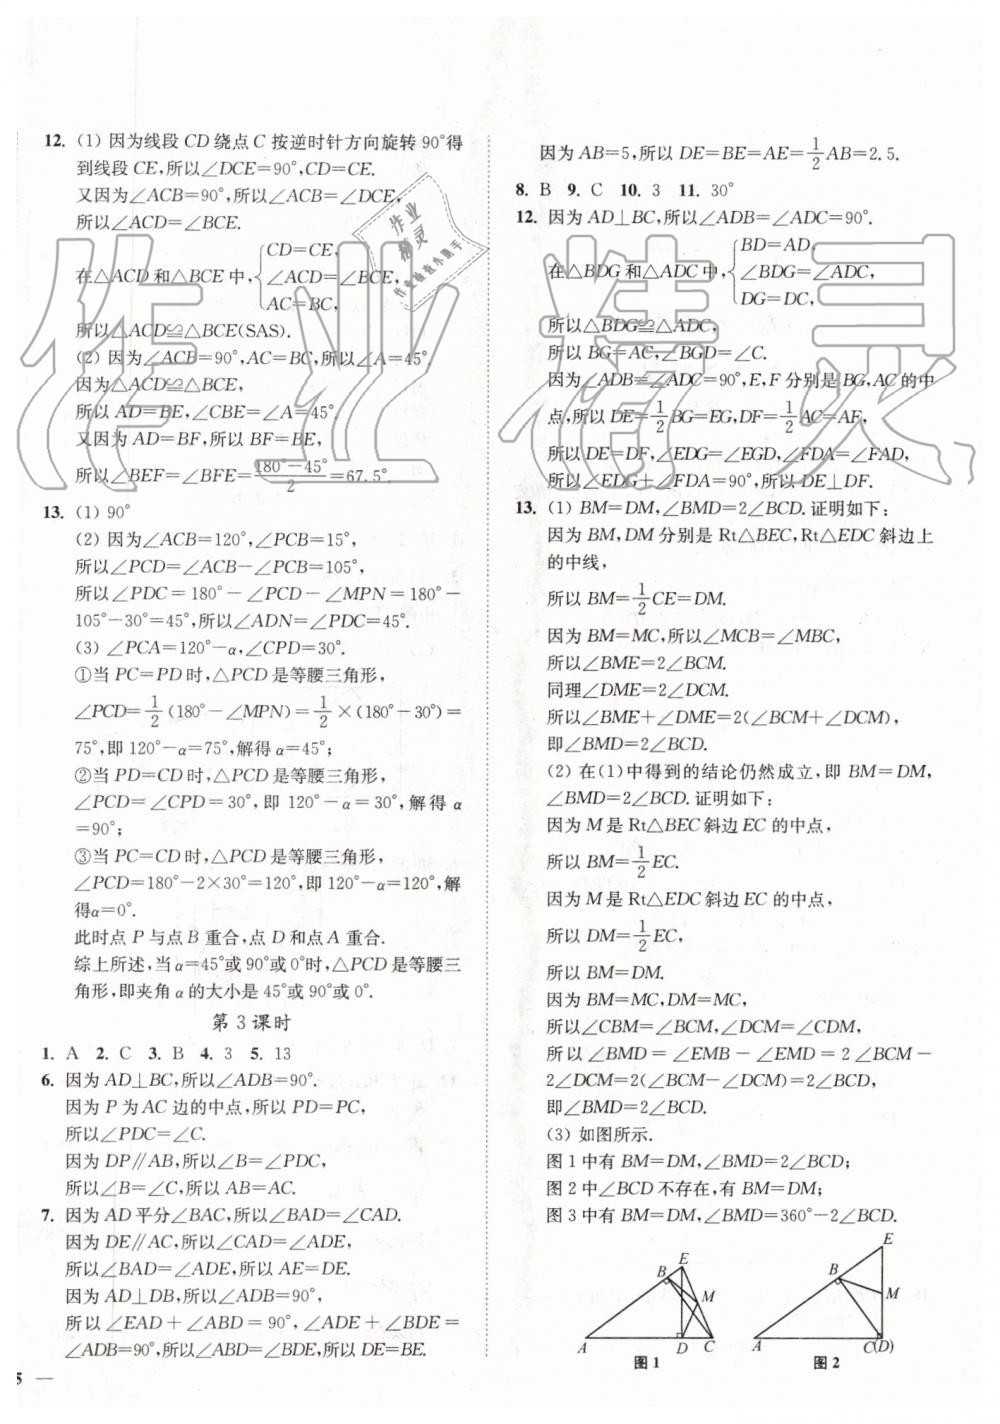 12. (1) 因为线段 CD 绕点 C 按逆时针方向旋转 90°得
到线段 CE,所以∠DCE=90°,CD=CE.
又因为∠ACB=90°,所以∠ACB=∠DCE,
所以∠ACD=∠BCE.
在△ACD 和△BCE 中,{CD=CE,
∠ACD=∠BCE,
AC=BC,
所以△ACD≌△BCE(SAS).
(2) 因为∠ACB=90°,AC=BC,所以∠A=45°.
因为△ACD≌△BCE,
所以 AD=BE,∠CBE=∠A=45°.
又因为 AD=BF,所以 BF=BE,
所以∠BEF=∠BFE=(180°-45°)/2=67.5°.
13. (1) 90°
(2) 因为∠ACB=120°,∠PCB=15°,
所以∠PCD=∠ACB-∠PCB=105°,
所以∠PDC=180°-∠PCD-∠MPN=180°-
105°-30°=45°,所以∠ADN=∠PDC=45°.
(3) ∠PCA=120°-α,∠CPD=30°.
①当 PC=PD 时,△PCD 是等腰三角形,
∠PCD=1/2(180°-∠MPN)=1/2×(180°-30°)=
75°,即 120°-α=75°,解得 α=45°;
②当 PD=CD 时,△PCD 是等腰三角形,
∠PCD=∠CPD=30°,即 120°-α=30°,解得 α
=90°;
③当 PC=CD 时,△PCD 是等腰三角形,
∠PCD=180°-2×30°=120°,即 120°-α=120°,解
得α=0°.
此时点 P 与点 B 重合,点 D 和点 A 重合.
综上所述,当 α=45°或 90°或 0°时,△PCD 是等腰三
角形,即夹角 α 的大小是 45°或 90°或 0°.
第 3 课时
1. A 2. C 3. B 4. 3 5. 13
6. 因为 AD⊥BC,所以∠ADB=90°.
因为 P 为 AC 边的中点,所以 PD=PC,
所以∠PDC=∠C.
因为 DP∥AB,所以∠B=∠PDC,
所以∠B=∠C,所以 AB=AC.
7. 因为 AD 平分∠BAC,所以∠BAD=∠CAD.
因为 DE∥AC,所以∠CAD=∠ADE,
所以∠BAD=∠ADE,所以 AE=DE.
因为 AD⊥DB,所以∠ADB=90°,
所以∠EAD+∠ABD=90°,∠ADE+∠BDE=
∠ADB=90°,所以∠ABD=∠BDE,所以 DE=BE.
5 —
因为 AB=5,所以 DE=BE=AE=1/2AB=2.5.
8. B 9. C 10. 3 11. 30°
12. 因为 AD⊥BC,所以∠ADB=∠ADC=90°.
在△BDG 和△ADC 中,{BD=AD,
∠BDG=∠ADC,
DG=DC,
所以△BDG≌△ADC,
所以 BG=AC,∠BGD=∠C.
因为∠ADB=∠ADC=90°,E,F 分别是 BG,AC 的中
点,所以 DE=1/2BG=EG,DF=1/2AC=AF,
所以 DE=DF,∠EDG=∠EGD,∠FDA=∠FAD,
所以∠EDG+∠FDA=90°,所以 DE⊥DF.
13. (1) BM=DM,∠BMD=2∠BCD.证明如下:
因为 BM,DM 分别是 Rt△BEC,Rt△EDC 斜边上
的中线,
所以 BM=1/2CE=DM.
因为 BM=MC,所以∠MCB=∠MBC,
所以∠BME=2∠BCM.
同理∠DME=2∠DCM.
所以∠BME+∠DME=2(∠BCM+∠DCM),
即∠BMD=2∠BCD.
(2) 在(1)中得到的结论仍然成立,即 BM=DM,
∠BMD=2∠BCD.证明如下:
因为 M 是 Rt△BEC 斜边 EC 的中点,
所以 BM=1/2EC.
因为 M 是 Rt△EDC 斜边 EC 的中点,
所以 DM=1/2EC,
所以 BM=DM.
因为 BM=MC,DM=MC,
所以∠CBM=∠BCM,∠DCM=∠CDM,
所以∠BMD=∠EMB-∠EMD=2∠BCM-
2∠DCM=2(∠BCM-∠DCM)=2∠BCD,
即∠BMD=2∠BCD.
(3) 如图所示.
图 1 中有 BM=DM,∠BMD=2∠BCD;
图 2 中∠BCD 不存在,有 BM=DM;
图 3 中有 BM=DM,∠BMD=360°-2∠BCD.
E
B
M
A D C
图 1
E
B
M
A C(D)
图 2
作业精灵
作业
精灵